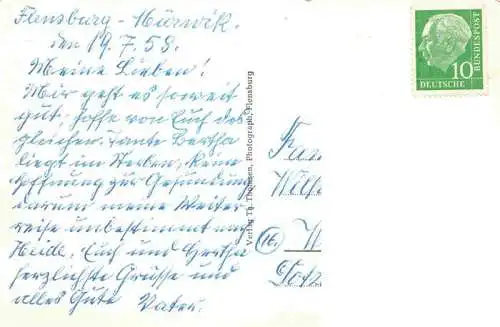 Flensburg - Mürwik.
den 19.7.58.
Meine Lieben!
Mir geht es soweit
gut, hoffe von Euch des
gleichen. Tante Bertha
liegt im Sterben, keine
Hoffnung zur Gesundung
darum meine Weiter
reise unbestimmt nach
Heide. Euch und Hertha
herzlichste Grüsse und
alles Gute Vater.
Verlag Th. Thomsen, Photograph, Flensburg
10
DEUTSCHE
BUNDESPOST
(16)